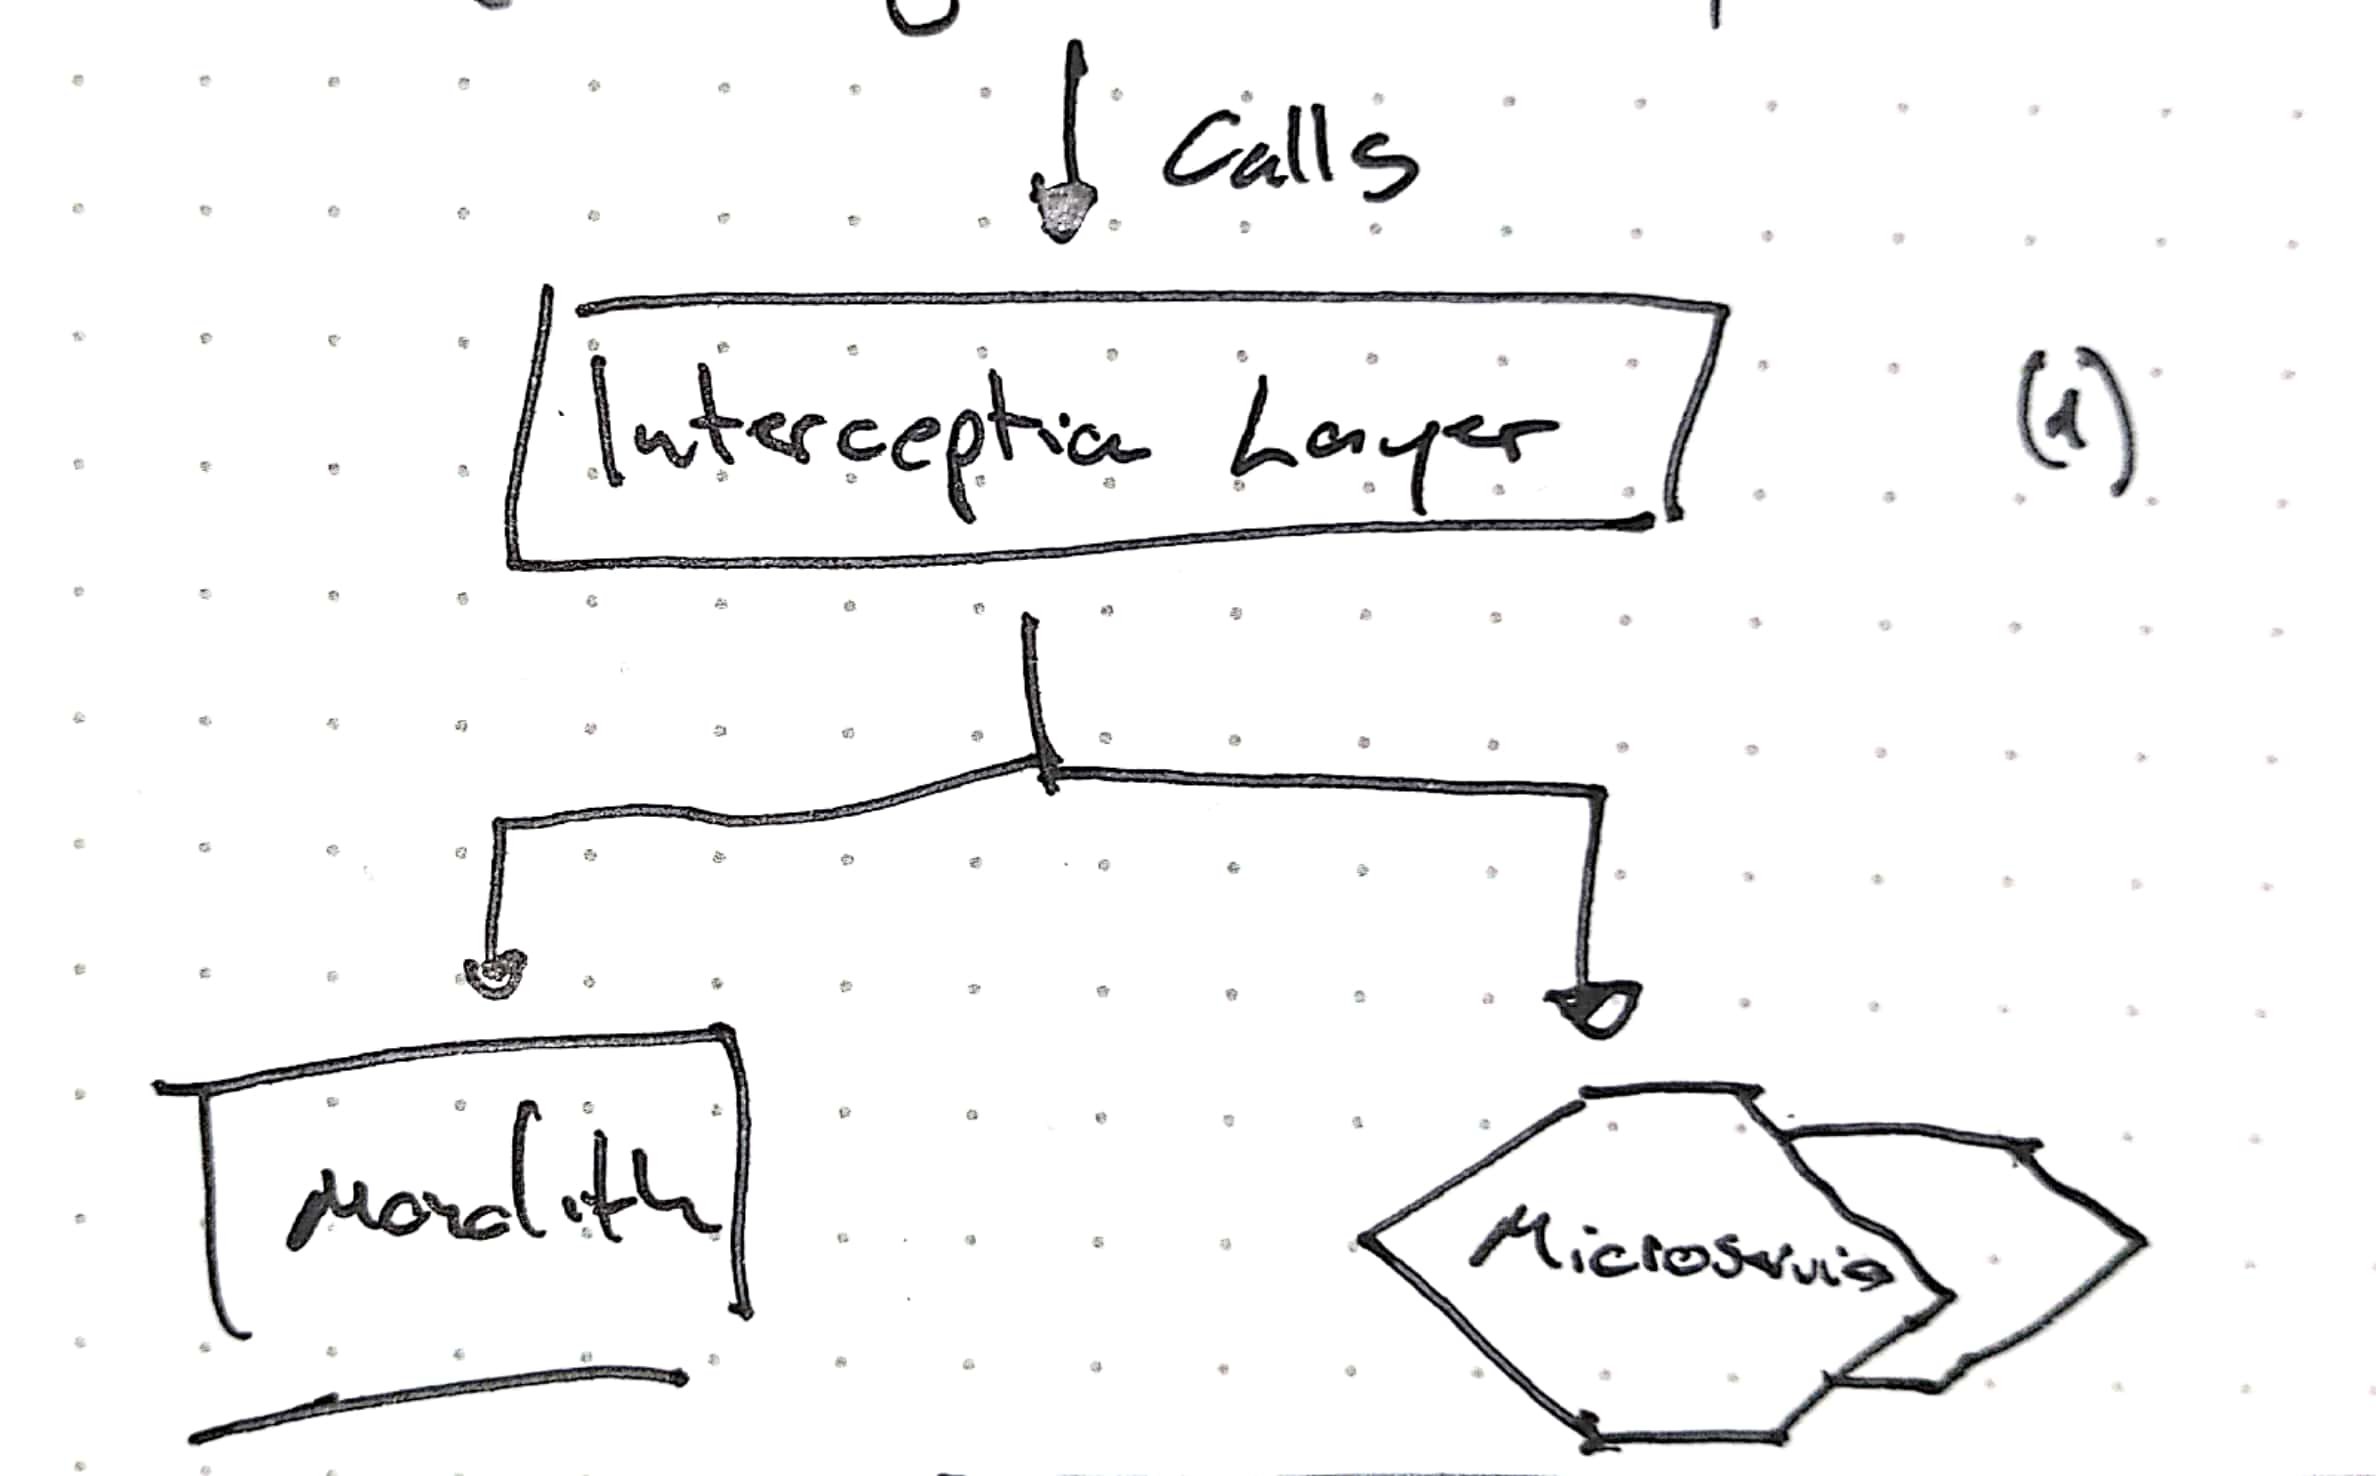 Calls
Interception Layer
(1)
Monolith
Microservis